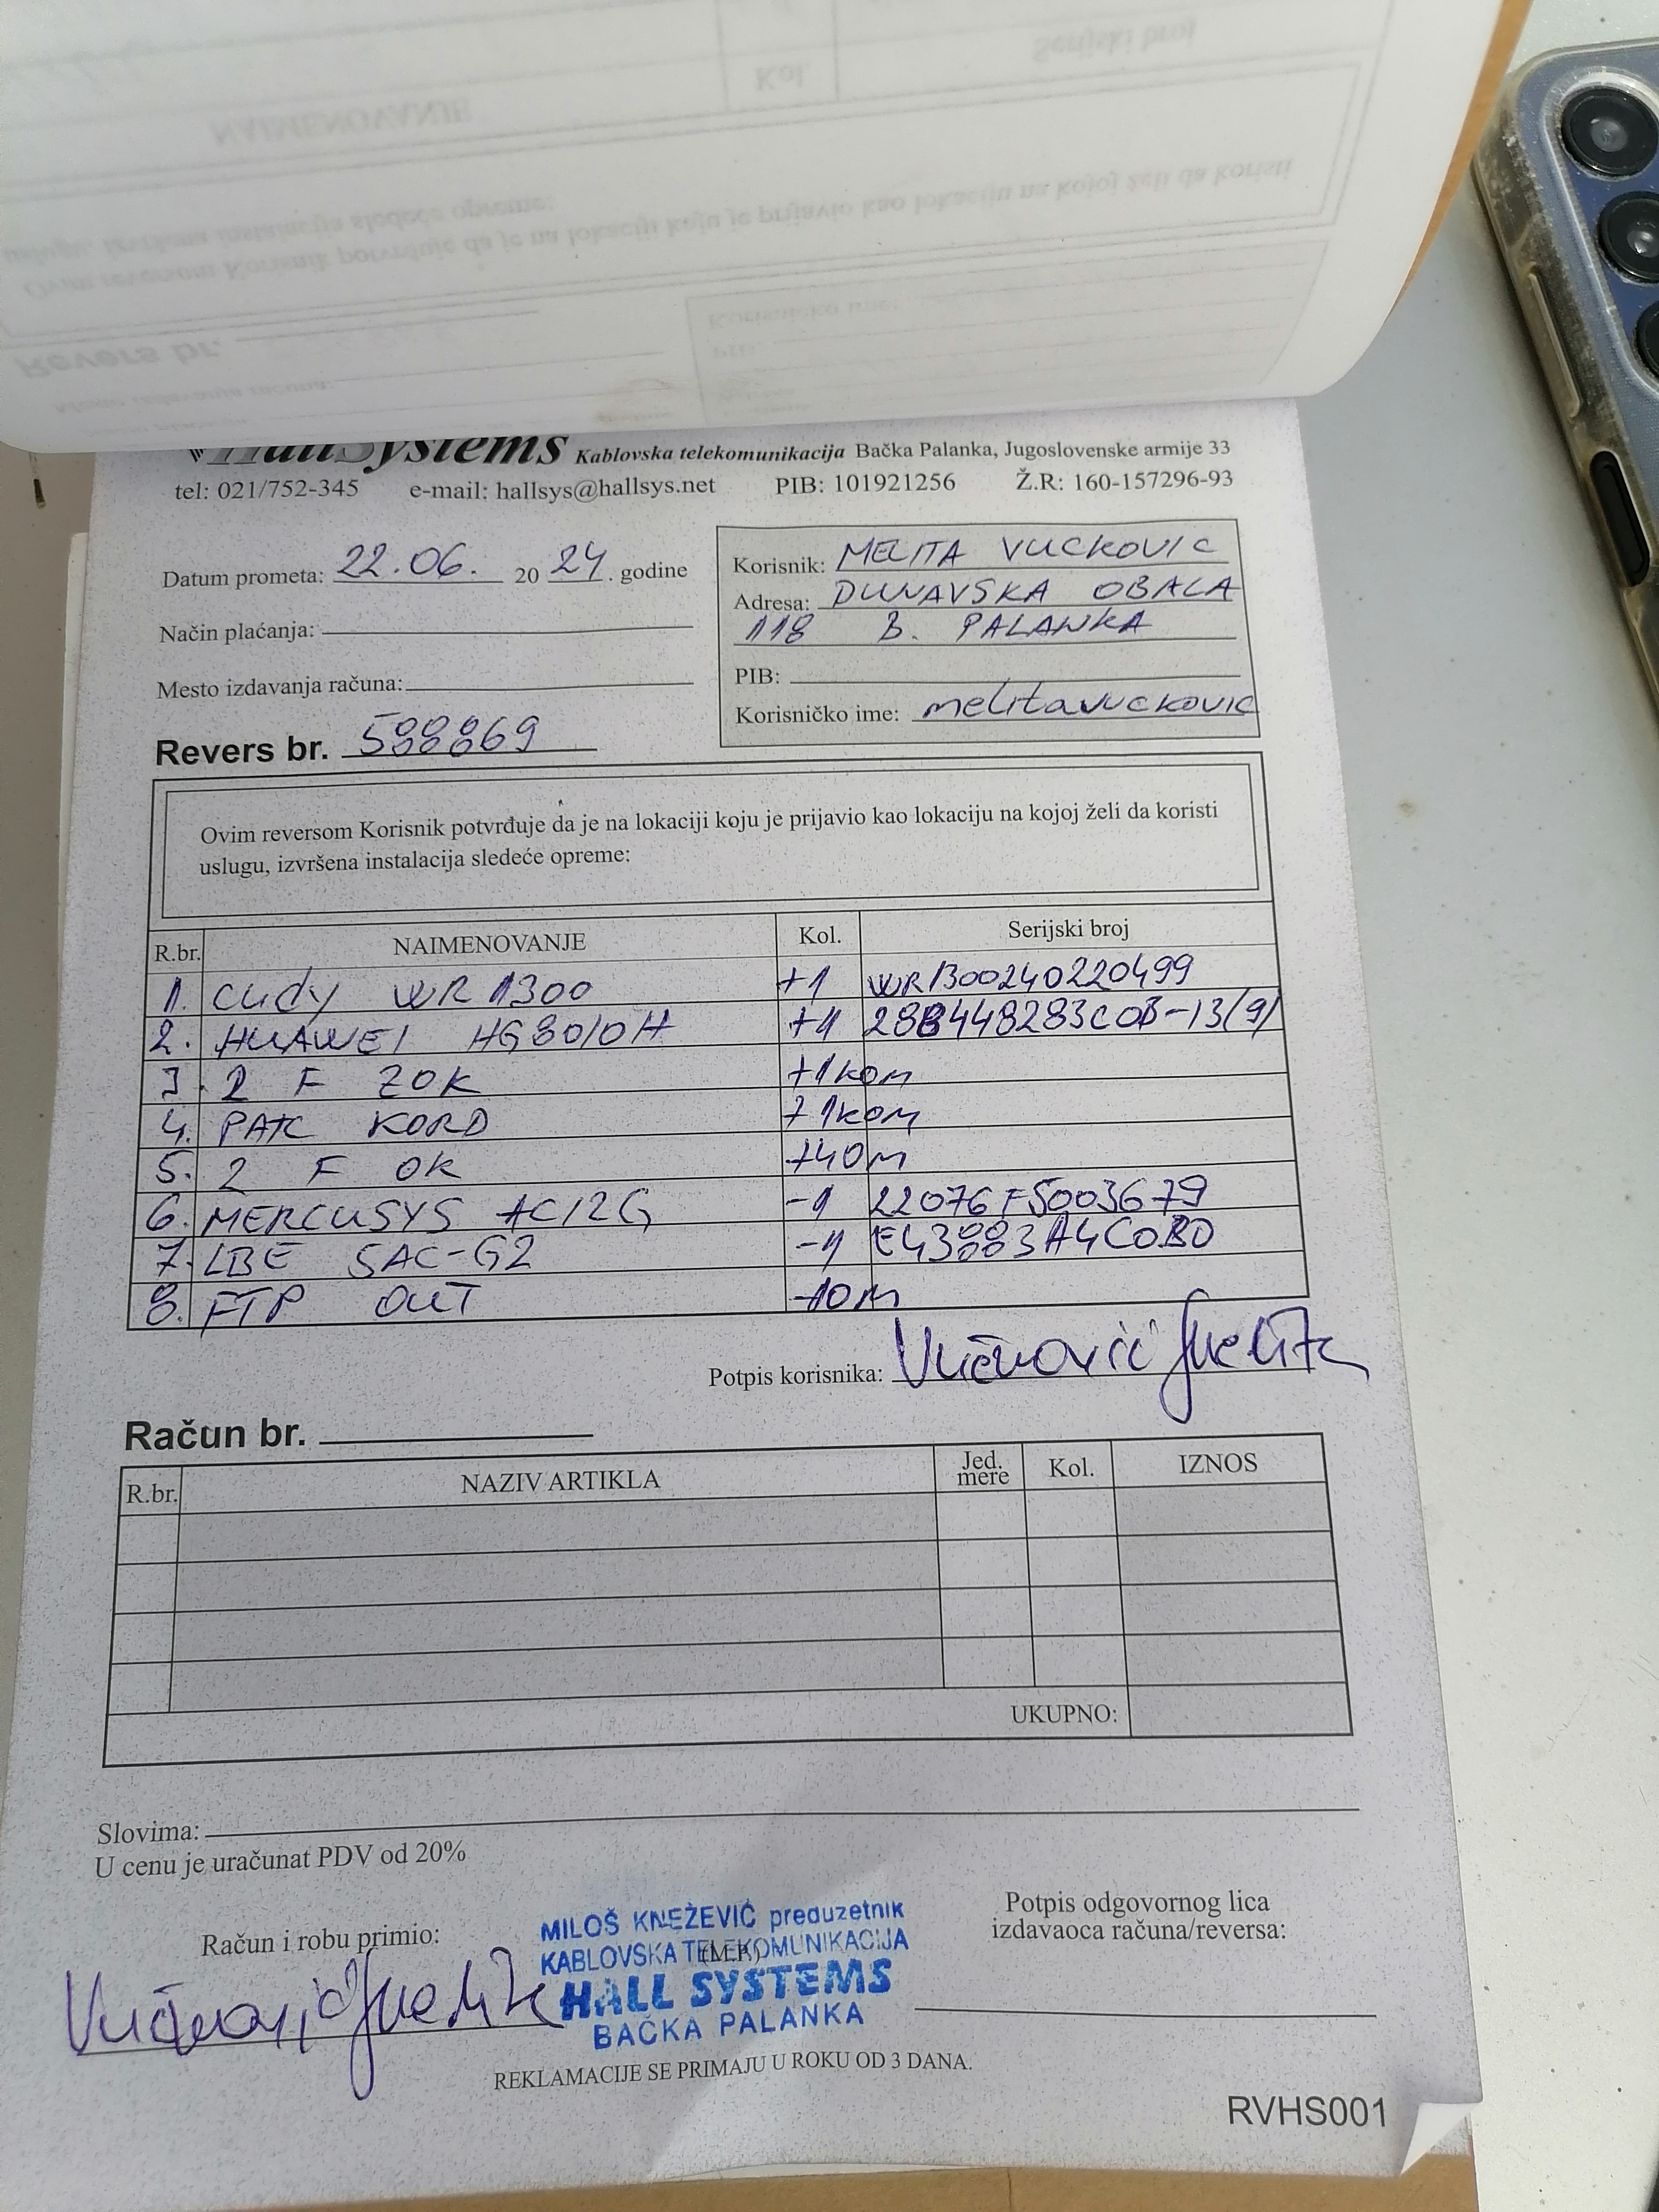 HallSystems Kablovska telekomunikacija Bačka Palanka, Jugoslovenske armije 33
tel: 021/752-345 e-mail: hallsys@hallsys.net PIB: 101921256 Ž.R: 160-157296-93
Datum prometa: 22.06. 20 24. godine
Način plaćanja:
Mesto izdavanja računa:
Revers br. 588869
Korisnik: MELITA VUCKOVIC
Adresa: DUNAVSKA OBALA
118 B. PALANKA
PIB:
Korisničko ime: melitavuckovic
Ovim reversom Korisnik potvrđuje da je na lokaciji koju je prijavio kao lokaciju na kojoj želi da koristi
uslugu, izvršena instalacija sledeće opreme:
R.br. NAIMENOVANJE Kol. Serijski broj
1. Cudy WR 1300 +1 WR1300240220499
2. HUAWEI HG8010H +1 28B448283C0B-13(9)
3. 2 F ZOK +1kom
4. PATC KORD +1kom
5. 2 F OK +40m
6. MERCUSYS AC12G -1 22076F5003679
7. LBE 5AC-G2 -1 E43883A4C0B0
8. FTP OUT -10m
Potpis korisnika: Vučković Melita
Račun br.
R.br. NAZIV ARTIKLA Jed. mere Kol. IZNOS
UKUPNO:
Slovima:
U cenu je uračunat PDV od 20%
Račun i robu primio:
Vučković Melita
MILOŠ KNEŽEVIĆ preduzetnik
KABLOVSKA TELEKOMUNIKACIJA
(M.P.)
HALL SYSTEMS
BAČKA PALANKA
Potpis odgovornog lica
izdavaoca računa/reversa:
REKLAMACIJE SE PRIMAJU U ROKU OD 3 DANA.
RVHS001